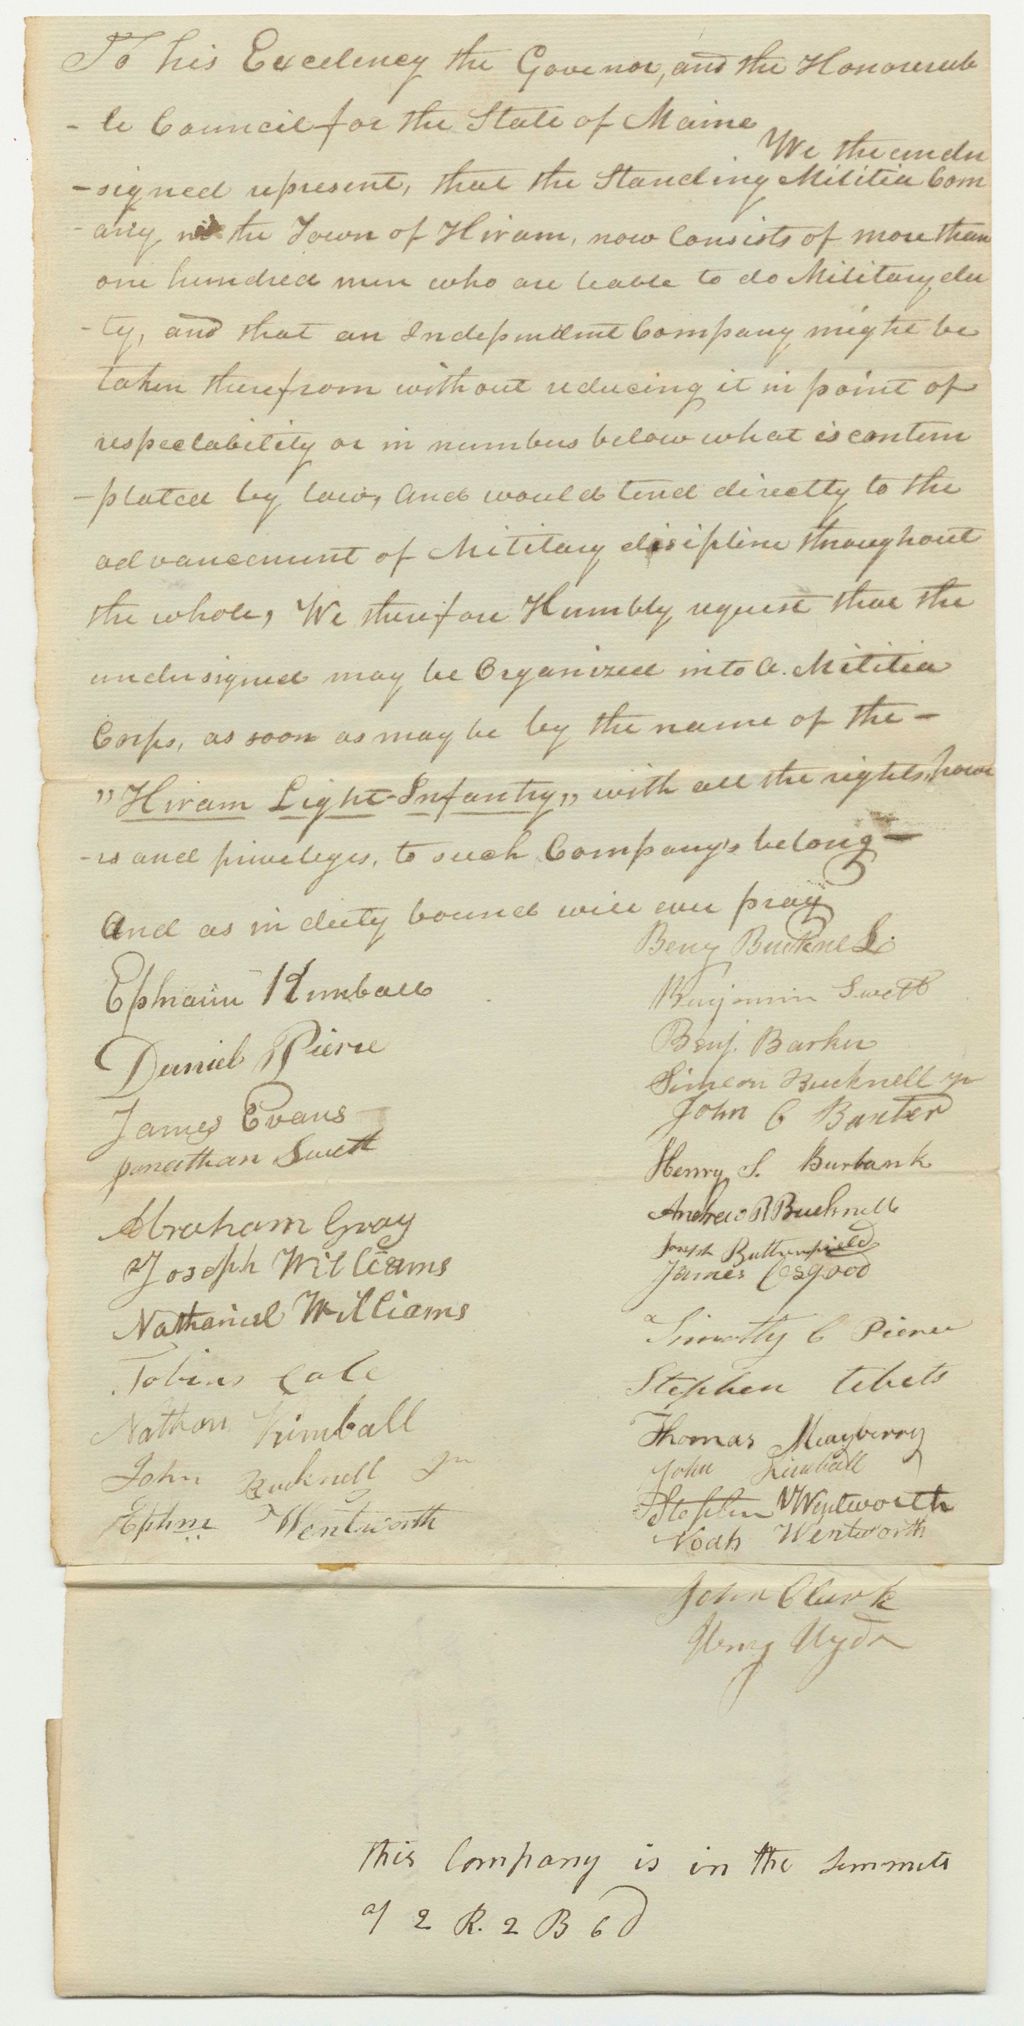 To his Excelency the Govenor, and the Honourub
- le Council for the State of Maine
We the undr
- signed represent, that the Standing Militia Com
- any in the Town of Hiram, now Consists of more than
one hundred men who are leable to do Military du
- ty, and that an Independent Company might be
taken therefrom without reducing it in point of
respectability or in numbers below what is contem
- plated by law, and would tend directly to the
advancement of Military disipline throughout
the whole, We therefore Humbly request that the
undersigned may be Organized into a Militia
Corps, as soon as may be by the name of the -
"Hiram Light-Infantry," with all the rights, honu
- rs and priveleges, to such Company's belong -
And as in duty bound will ever pray
Ephraim Kimball
Daniel Pierce
James Evans
Jonathan Swett
Abraham Gray
Joseph Williams
Nathaniel Williams
Tobias Cole
Nathan Kimball
John Bucknell Jr
Ephm Wentworth
Benj Bucknell
Benjamin Swett
Benj. Barker
Simeon Bucknell Jr
John C Baxter
Henry S. Burbank
Andrew R Bucknell
Joseph Butterfield
James Osgood
Timothy C Pierce
Stephen tebets
Thomas Mayberry
John Kimball
Stephen Wentworth
Noah Wentworth
John Clark
Henry Hyde
this Company is in the limmits
of 2 R. 2 B 6 D